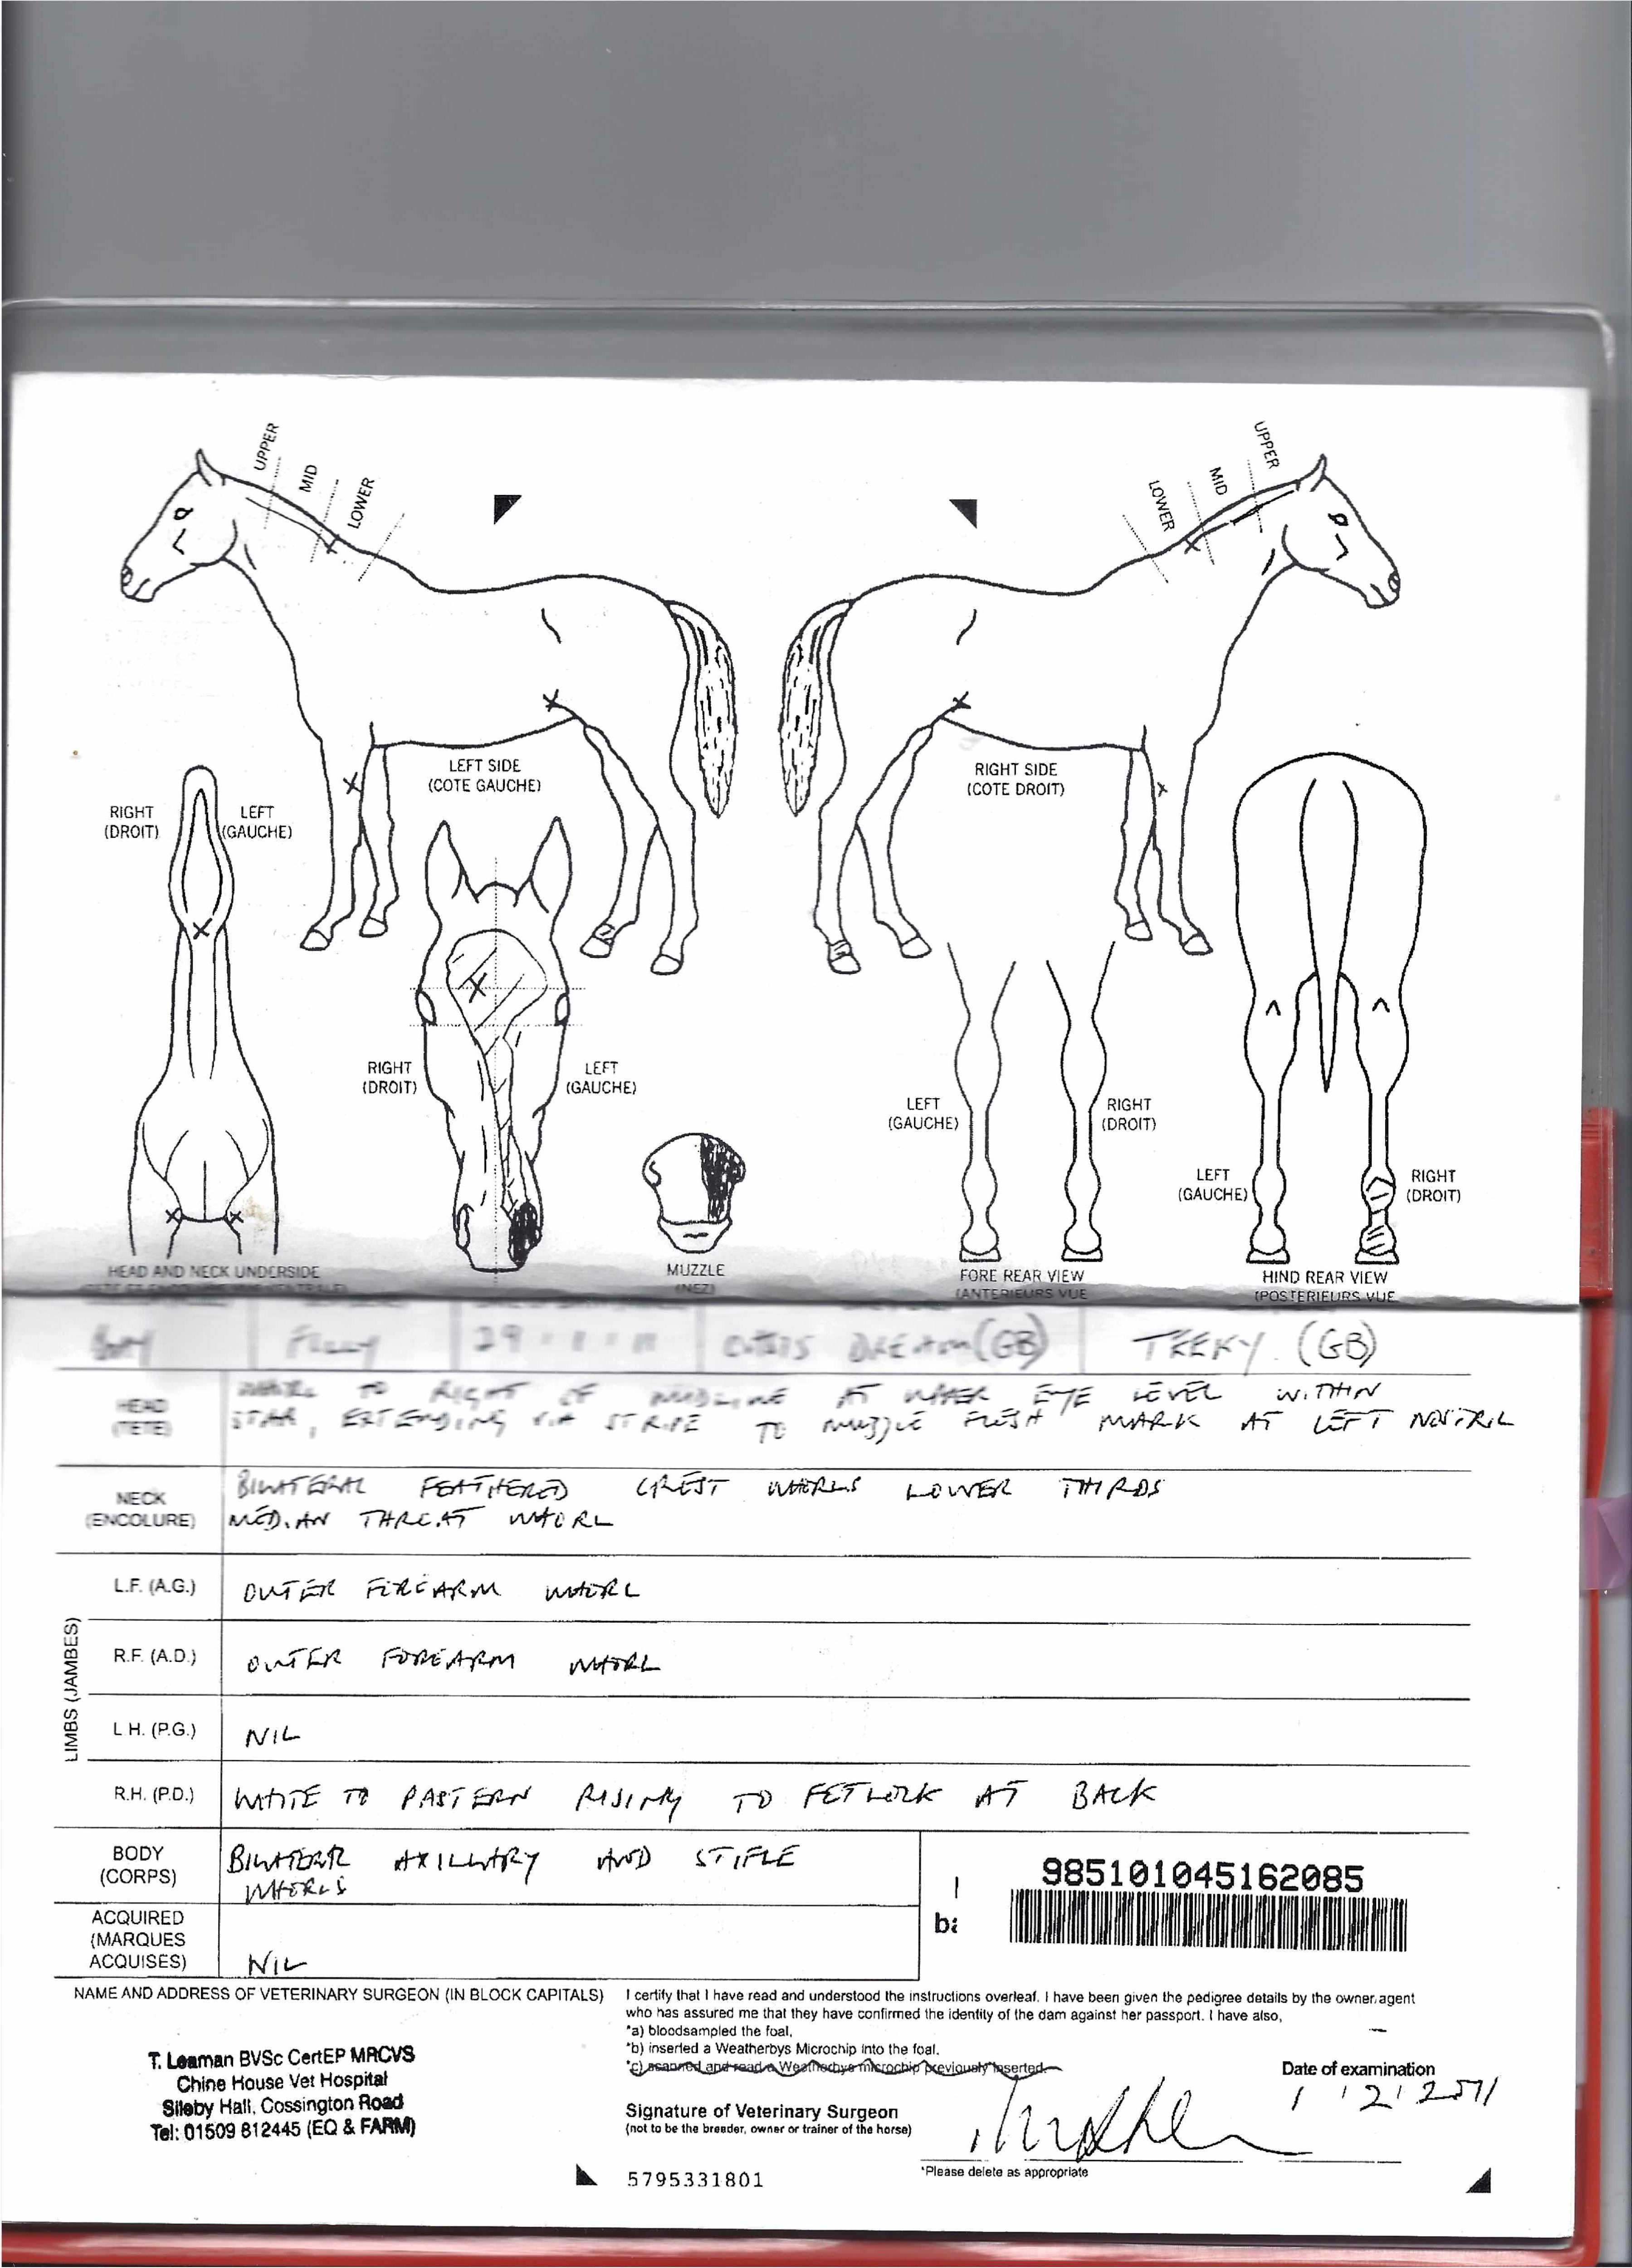 UPPER
MID
LOWER
UPPER
MID
LOWER
LEFT SIDE
(COTE GAUCHE)
RIGHT SIDE
(COTE DROIT)
RIGHT
(DROIT)
LEFT
(GAUCHE)
RIGHT
(DROIT)
LEFT
(GAUCHE)
LEFT
(GAUCHE)
RIGHT
(DROIT)
LEFT
(GAUCHE)
RIGHT
(DROIT)
HEAD AND NECK UNDERSIDE
MUZZLE
(NEZ)
FORE REAR VIEW
(ANTERIEURS VUE
HIND REAR VIEW
(POSTERIEURS VUE
FILLY 29 DREAM (GB) TEEKY. (GB)
HEAD
(TETE)
WHORL TO RIGHT OF MIDLINE AT UPPER EYE LEVEL WITHIN
STAR, EXTENDING VIA STRIPE TO MUZZLE FLESH MARK AT LEFT NOSTRIL
NECK
(ENCOLURE)
BILATERAL FEATHERED CREST WHORLS LOWER THIRDS
MEDIAN THROAT WHORL
LIMBS (JAMBES)
L.F. (A.G.) OUTER FOREARM WHORL
R.F. (A.D.) OUTER FOREARM WHORL
L H. (P.G.) NIL
R.H. (P.D.) WHITE TO PASTERN RISING TO FETLOCK AT BACK
BODY
(CORPS)
BILATERAL AXILLARY AND STIFLE
WHORLS
985101045162085
ACQUIRED
(MARQUES
ACQUISES) NIL
NAME AND ADDRESS OF VETERINARY SURGEON (IN BLOCK CAPITALS)
T. Leaman BVSc CertEP MRCVS
Chine House Vet Hospital
Sileby Hall, Cossington Road
Tel: 01509 812445 (EQ & FARM)
I certify that I have read and understood the instructions overleaf. I have been given the pedigree details by the owner/agent
who has assured me that they have confirmed the identity of the dam against her passport. I have also,
*a) bloodsampled the foal,
*b) inserted a Weatherbys Microchip into the foal.
*c) scanned and read a Weatherbys microchip previously inserted.
Date of examination
Signature of Veterinary Surgeon
(not to be the breeder, owner or trainer of the horse)
*Please delete as appropriate
5795331801